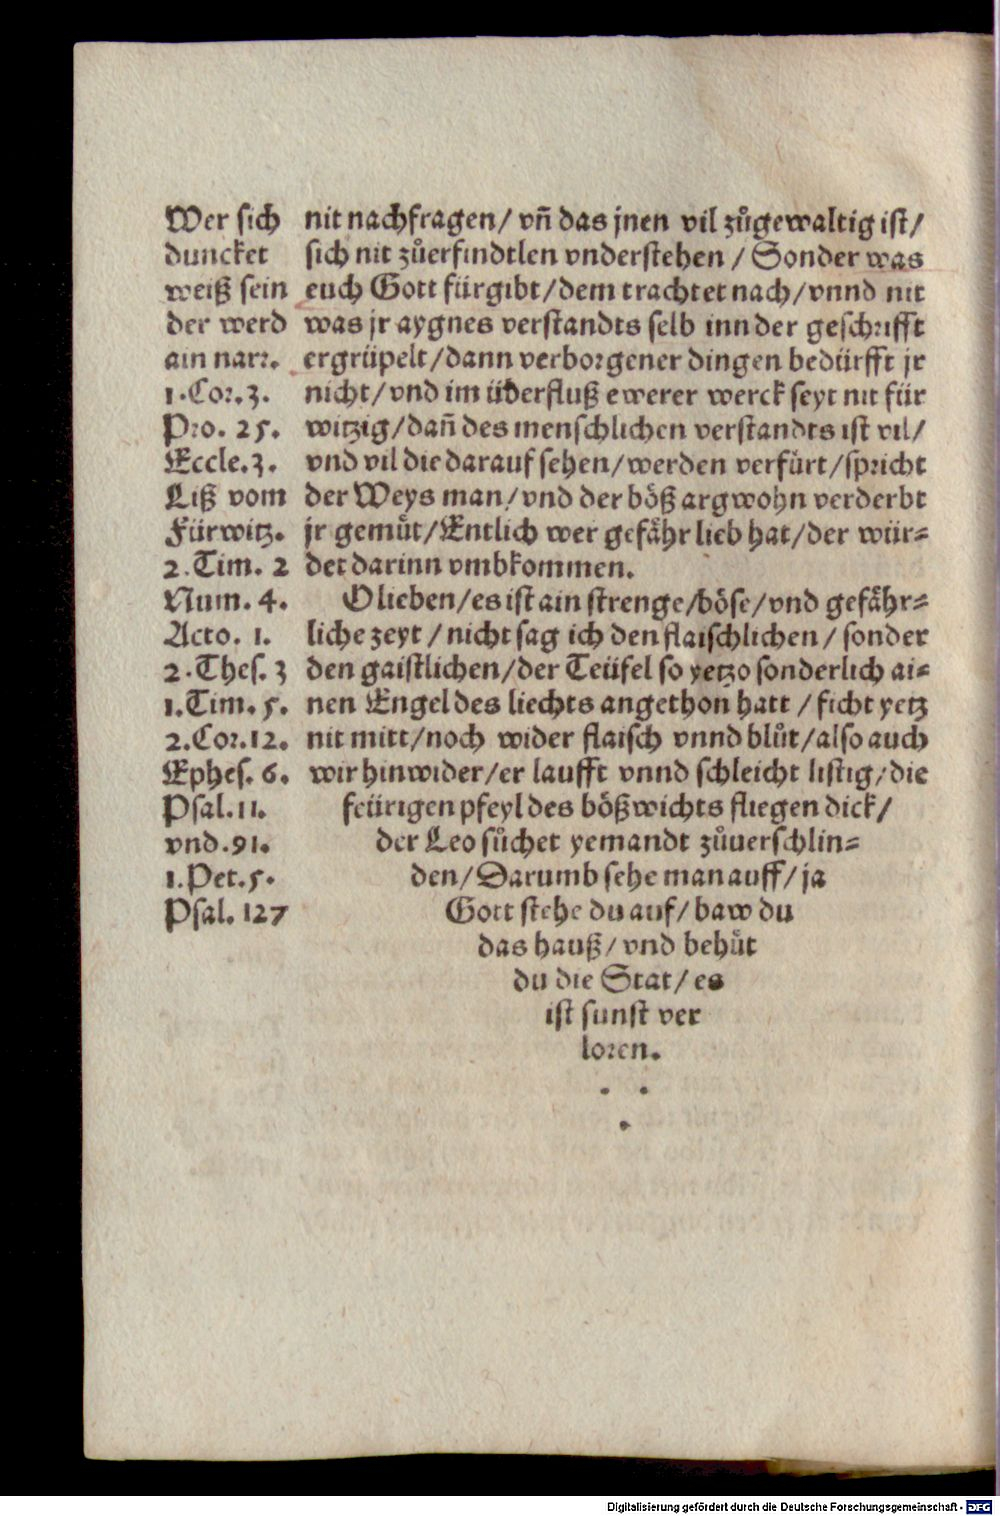 Wer sich
duncket
weiß sein
der werd
ain narr.
1. Cor. 3.
Pro. 25.
Eccle. 3.
Liß vom
Fürwitz.
2. Tim. 2
Num. 4.
Acto. 1.
2. Thes. 3
1. Tim. 5.
2. Cor. 12.
Ephes. 6.
Psal. 11.
vnd. 91.
1. Pet. 5.
Psal. 127
nit nachfragen/ vñ das jnen vil zůgewaltig ist/
sich nit zůerfindtlen vnderstehen / Sonder was
euch Gott fürgibt/dem trachtet nach/vnnd nit
was jr aygnes verstandts selb inn der geschrifft
ergrüpelt/dann verborgener dingen bedürfft jr
nicht/vnd im überfluß ewerer werck seyt nit für
witzig/dañ des menschlichen verstandts ist vil/
vnd vil die darauf sehen/werden verfürt/spricht
der Weys man/vnd der böß argwohn verderbt
jr gemůt/Entlich wer gefåhr lieb hat/der wür⸗
det darinn vmbkommen.
O lieben/es ist ain strenge/böse/vnd gefåhr⸗
liche zeyt / nicht sag ich den flaischlichen / sonder
den gaistlichen/der Teüfel so yetzo sonderlich ai⸗
nen Engel des liechts angethon hatt / ficht yetz
nit mitt/noch wider flaisch vnnd blůt/also auch
wir hinwider/er laufft vnnd schleicht listig/die
feürigen pfeyl des bößwichts fliegen dick/
der Leo sůchet yemandt zůuerschlin⸗
den/Darumb sehe man auff/ja
Gott stehe du auf/baw du
das hauß/vnd behůt
du die Stat/es
ist sunst ver
loren.
Digitalisierung gefördert durch die Deutsche Forschungsgemeinschaft - DFG